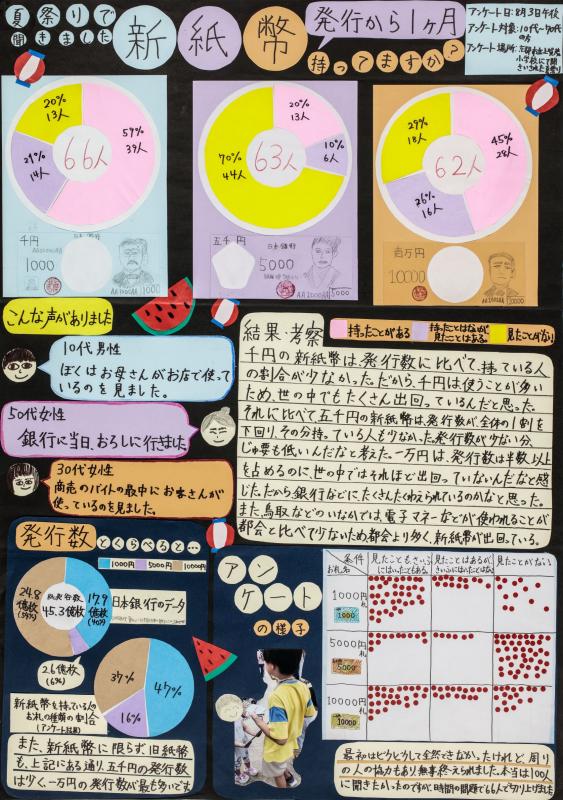 夏祭りで
聞きました
新紙幣
発行から1ヶ月
持ってますか?
アンケート日:8月3日午後
アンケート対象:10代~90代
の方
アンケート場所:
小学校にて開
20%
13人
59%
39人
21%
14人
66人
20%
13人
10%
6人
70%
44人
63人
29%
18人
45%
28人
26%
16人
62人
千円
日本銀行
AA1000AA
1000
五千円
日本銀行
5000
AA1000AA
5000
壱万円
10000
AA1000AA
こんな声がありました
10代男性
ぼくはお母さんがお店で使って
いるのを見ました。
50代女性
銀行に当日、おろしに行きました
30代女性
商売のバイトの最中にお客さんが
使っているのを見ました。
結果考察
持ったことがある
持ったことはないが
見たことはある。
見たことがない
千円の新紙幣は、発行数に比べて、持っている人
の割合が少なかった。だから、千円は使うことが多い
ため、世の中でもたくさん出回っているんだと思った。
それに比べて五千円の新紙幣は、発行数が、全体の1割を
下回り、その分持っている人も少なかった。発行数が少ない分、
じゅ要も低いんだなと考えた。一万円は、発行数は半数以上
を占めるのに、世の中ではそれほど出回っていないんだなと感
じた。だから、銀行などに、たくさんたくわえられているのかなと思った。
また、鳥取などのいなかでは、電子マネーなどが使われることが
都会と比べて少ないため、都会より多く、新紙幣が出回っている。
発行数とくらべると…
1000円
5000円
10000円
24.8
億枚
(54%)
総発行数
45.3億枚
17.9
億枚
(40%)
2.6億枚
(6%)
日本銀行のデータ
37%
47%
16%
新紙幣を持っている人の
お札の種類の割合
(アンケート結果)
また、新紙幣に限らず旧紙幣
も、上記にある通り、五千円の発行数
は少く、一万円の発行数が最も多いです
アンケート
の様子
条件
お札名
見たこともさいふ
にはいったこともある。
見たことはあるが、
さいふにはいったことはない
見たことがない
1000円
札
1000
5000円
札
5000
10000円
札
10000
最初はビクビクして全然できなかったけれど、周り
の人の協力もあり、無事、終えられました。本当は100人
に聞きたかったのですが、時間の問題で66人で切り上げました